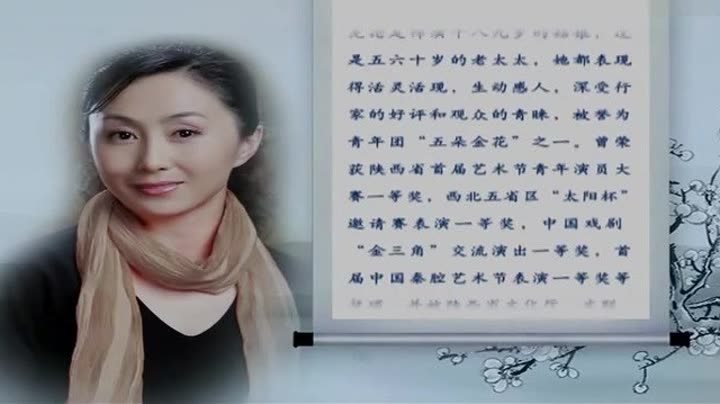 是五六十岁的老太太，她都表现
得活灵活现，生动感人，深受行
家的好评和观众的青睐，被誉为
青年团“五朵金花”之一。曾荣
获陕西省首届艺术节青年演员大
赛一等奖，西北五省区“太阳杯”
邀请赛表演一等奖，中国戏剧
“金三角”交流演出一等奖，首
届中国秦腔艺术节表演一等奖等